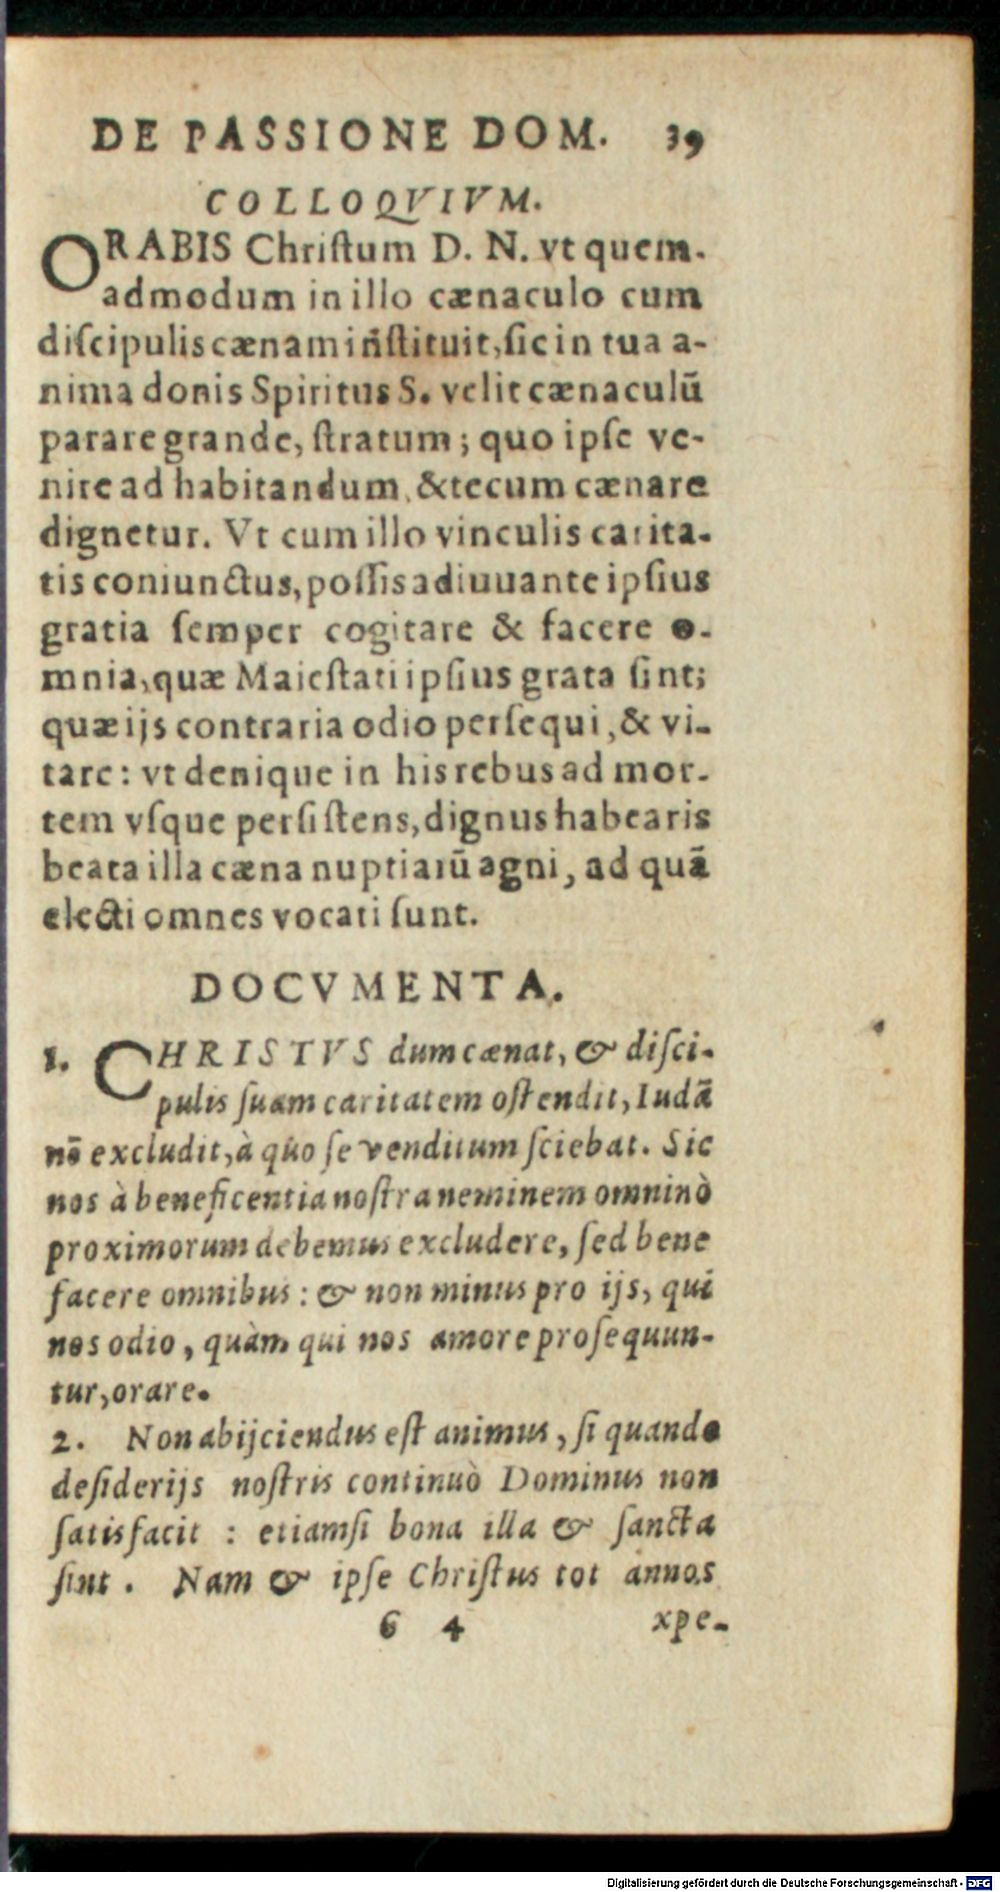 DE PASSIONE DOM. 39
COLLOQVIVM.
ORABIS Chriſtum D. N. vt quem-
admodum in illo cænaculo cum
diſcipulis cænam inſtituit, ſic in tua a-
nima donis Spiritus S. velit cænaculū
parare grande, ſtratum; quo ipſe ve-
nire ad habitandum, & tecum cænare
dignetur. Vt cum illo vinculis carita-
tis coniunctus, poſſis adiuuante ipſius
gratia ſemper cogitare & facere o-
mnia, quæ Maieſtati ipſius grata ſint;
quæ ijs contraria odio perſequi, & vi-
tare: vt denique in his rebus ad mor-
tem vſque perſiſtens, dignus habearis
beata illa cæna nuptiarū agni, ad quā
electi omnes vocati ſunt.
DOCVMENTA.
1. CHRISTVS dum cænat, & diſci-
pulis ſuam caritatem oſtendit, Iudā
nō excludit, à quo ſe venditum ſciebat. Sic
nos à beneficentia noſtra neminem omninò
proximorum debemus excludere, ſed bene
facere omnibus: & non minus pro ijs, qui
nos odio, quàm qui nos amore proſequun-
tur, orare.
2. Non abijciendus eſt animus, ſi quando
deſiderijs noſtris continuò Dominus non
ſatisfacit : etiamſi bona illa & ſancta
ſint. Nam & ipſe Chriſtus tot annos
6 4 xpe-
Digitalisierung gefördert durch die Deutsche Forschungsgemeinschaft - DFG